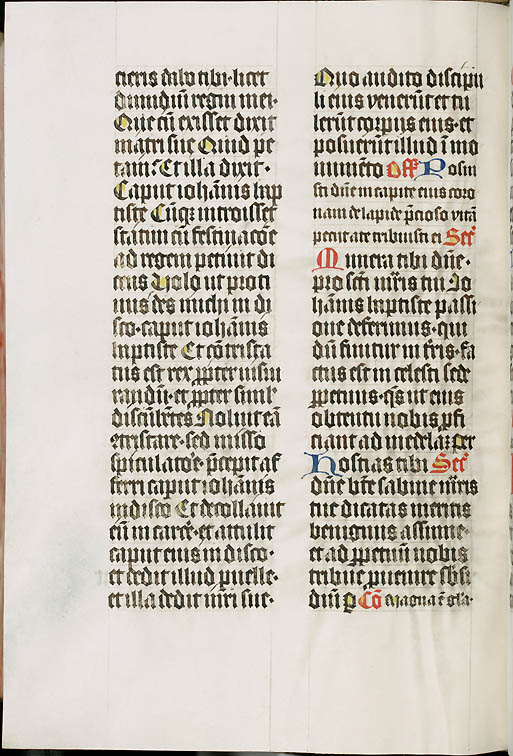 cieris dabo tibi·licet
dimidiū regni mei·
Que cū exisset dixit
matri sue Quid pe
tam? Et illa dixit·
Caput ioh̄annis bap
tiste Cūq; introisset
statim cū festinacōe
ad regem petiuit di
cens Volo ut proti
nus des michi in di
sco·caput ioh̄ānis
baptiste Et cōtrista
tus est rex ꝓpter iusiu
randū·et ꝓpter simul
discūbētes Noluit eā
cōtristare·sed misso
spiculatoē p̄cepit af
ferri caput ioh̄ānis
in disco Et decollauit
eū in carcē·et attulit
caput eius in disco·
et dedit illud puelle·
et illa dedit m̄ri sue·
Quo audito discipu
li eius venerūt et tu
lerūt corpus eius·et
posuerūt illud ī mo
numēto Off Posui
sti dn̄e in capite eius coro
nam de lapide p̄cioso vitā
peciit a te tribuisti ei Secͣ
Munera tibi dn̄e·
pro sc̄ti m̄ris tui Jo
hānis baptiste passi
one deferimus·qui
dū finitur in t̄ris·fa
ctus est in celesti sede
ꝑpetuus·q̄s ut eius
obtentu nobis ꝓfi
ciant ad medelaꝫ per
Hostias tibi Secͣ
dn̄e bt̄e sabine m̄ris
tue dicatas meritis
benignus assume·
et ad ꝑpetuū nobis
tribue ꝓuenire sb̄si
diū p Cō Magna ē gl̄a·